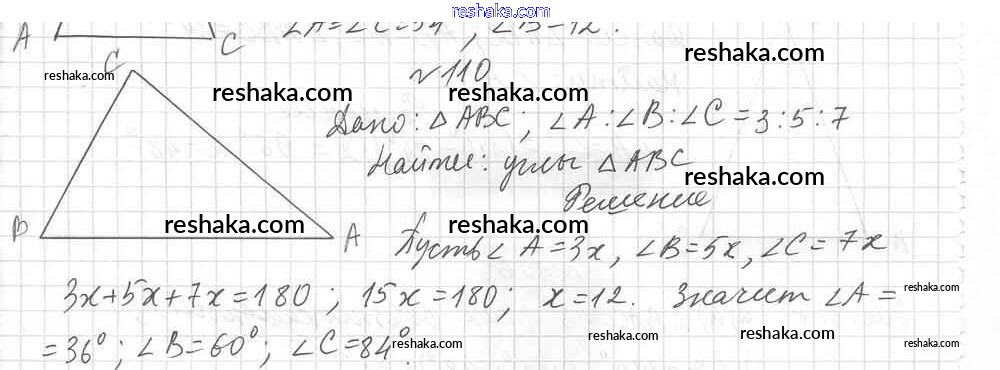 reshaka.com
A C ∠A=∠C=54°, ∠B=72°.
reshaka.com
C №110
reshaka.com
reshaka.com reshaka.com
Дано: △ABC; ∠A:∠B:∠C=3:5:7
Найти: углы △ABC
reshaka.com
Решение
reshaka.com reshaka.com
B A Пусть ∠A=3x, ∠B=5x, ∠C=7x
3x+5x+7x=180; 15x=180; x=12. Значит ∠A=
reshaka.com
=36°; ∠B=60°; ∠C=84°.
reshaka.com reshaka.com reshaka.com reshaka.com